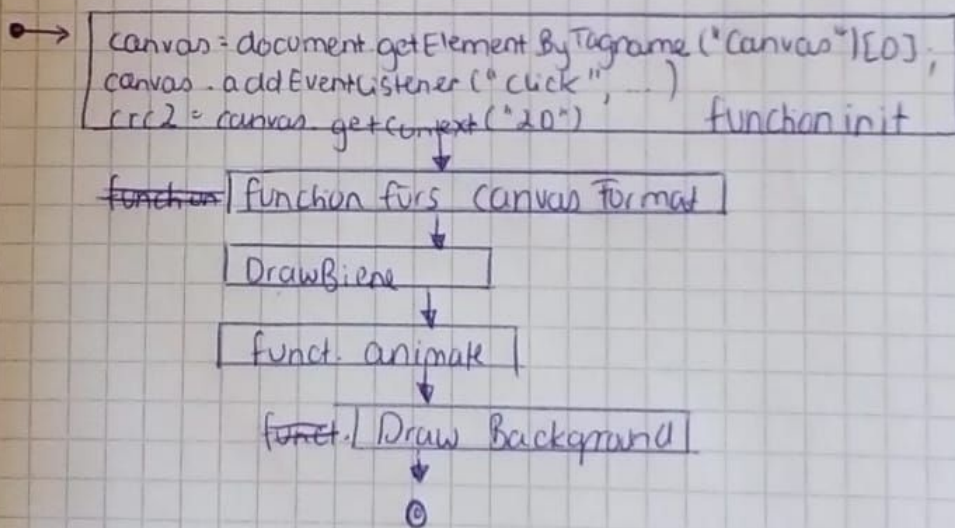 canvas = document.getElementByTagname("Canvas")[0];
canvas.addEventListener("click", ...)
crc2 = canvas.getContext("2D") function init
function fürs canvas Format
DrawBiene
funct. animate
funct. Draw Background